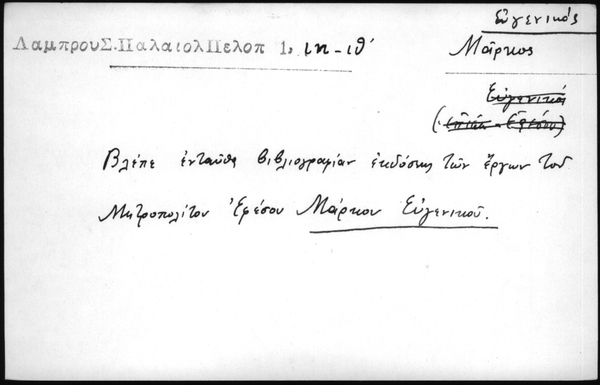 Εὐγενικός
ΛαμπρουΣ.ΠαλαιολΠελοπ 1, ιη-ιθ'
Μᾶρκος
Εὐγενικός
Βλέπε ἐνταῦθα βιβλιογραφίαν ἐκδόσεως τῶν ἔργων τοῦ
Μητροπολίτου Ἐφέσου Μάρκου Εὐγενικοῦ.